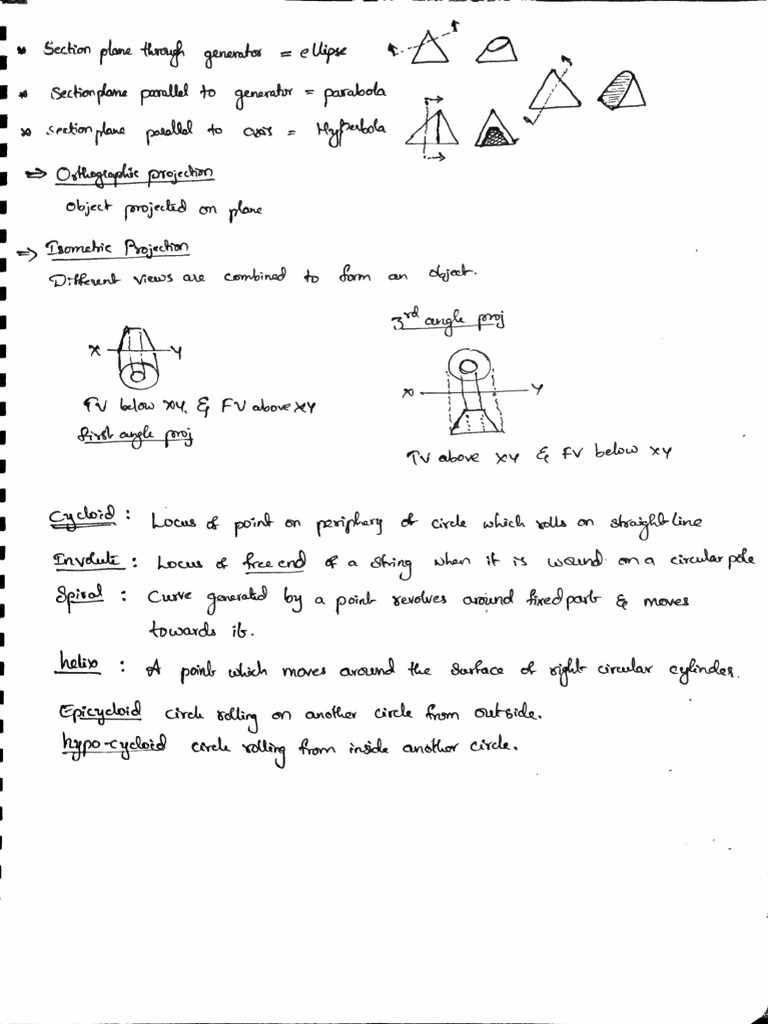 * Section plane through generator = ellipse
* Section plane parallel to generator = parabola
* Section plane parallel to axis = Hyperbola
⇒ Orthographic projection
Object projected on plane
⇒ Isometric Projection
Different views are combined to form an object.
X Y
TV below XY, & FV above XY
first angle proj
3rd angle proj
X Y
TV above XY & FV below XY
Cycloid : Locus of point on periphery of circle which rolls on straight line
Involute : Locus of free end of a string when it is wound on a circular pole
Spiral : Curve generated by a point revolves around fixed part & moves
towards it.
helix : A point which moves around the surface of right circular cylinder.
Epicycloid circle rolling on another circle from outside.
hypo-cycloid circle rolling from inside another circle.